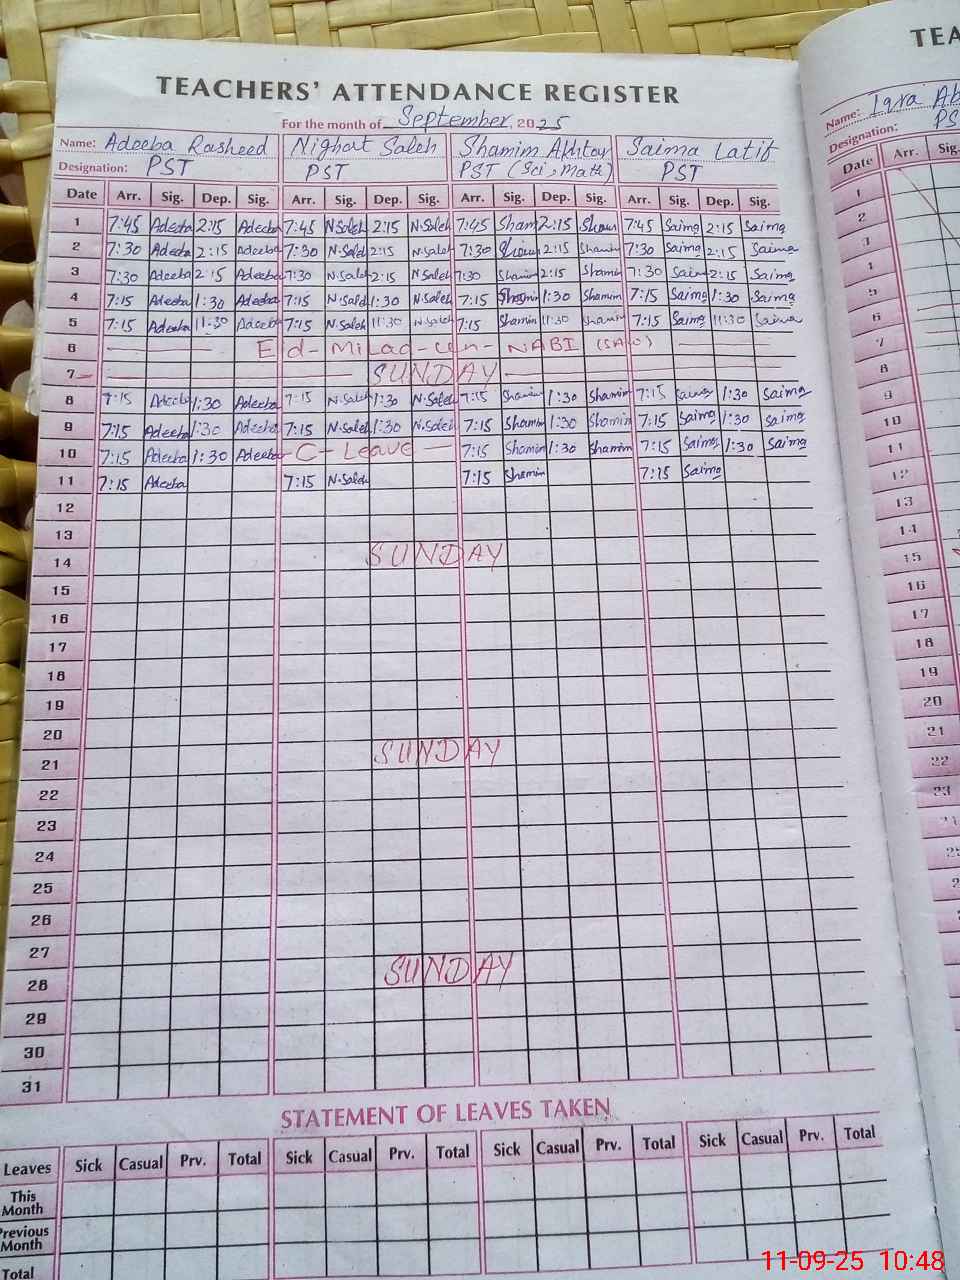 TEACHERS' ATTENDANCE REGISTER
For the month of September, 2025
Name: Adeeba Rasheed Nighat Saleh Shamim Akhtar Saima Latif
Designation: PST PST PST (Sci, Math) PST
Date Arr. Sig. Dep. Sig. Arr. Sig. Dep. Sig. Arr. Sig. Dep. Sig. Arr. Sig. Dep. Sig.
1 7:45 Adeeba 2:15 Adeeba 7:45 N.Saleh 2:15 N.Saleh 7:45 Sham 2:15 7:45 Saima 2:15 Saima
2 7:30 Adeeba 2:15 Adeeba 7:30 N.Saleh 2:15 N.Saleh 7:30 2:15 Shamim 7:30 Saima 2:15 Saima
3 7:30 Adeeba 2:15 Adeeba 7:30 N.Saleh 2:15 N.Saleh 7:30 Shamim 2:15 Shamim 7:30 Saim 2:15 Saima
4 7:15 Adeeba 1:30 Adeeba 7:15 N.Saleh 1:30 N.Saleh 7:15 Shamim 1:30 Shamim 7:15 Saima 1:30 Saima
5 7:15 Adeeba 11:30 Adeeba 7:15 N.Saleh 11:30 N.Saleh 7:15 Shamim 11:30 Shamim 7:15 Saima 11:30 Saima
6 Eid-Milad-un-NABI (SAW)
7 SUNDAY
8 7:15 Adeeba 1:30 Adeeba 7:15 N.Saleh 1:30 N.Saleh 7:15 Shamim 1:30 Shamim 7:15 Saima 1:30 Saima
9 7:15 Adeeba 1:30 Adeeba 7:15 N.Saleh 1:30 N.Saleh 7:15 Shamim 1:30 Shamim 7:15 Saima 1:30 Saima
10 7:15 Adeeba 1:30 Adeeba C-Leave 7:15 Shamim 1:30 Shamim 7:15 Saima 1:30 Saima
11 7:15 Adeeba 7:15 N.Saleh 7:15 Shamim 7:15 Saima
12
13
14 SUNDAY
15
16
17
18
19
20
21 SUNDAY
22
23
24
25
26
27
28 SUNDAY
29
30
31
STATEMENT OF LEAVES TAKEN
Leaves Sick Casual Prv. Total Sick Casual Prv. Total Sick Casual Prv. Total Sick Casual Prv. Total
This Month
Previous Month
Total
TEA
Name: Iqra Ab
Designation: PS
Date Arr. Sig.
1
2
3
4
5
6
7
8
9
10
11
12
13
14
15
16
17
18
19
20
21
22
23
11-09-25 10:48